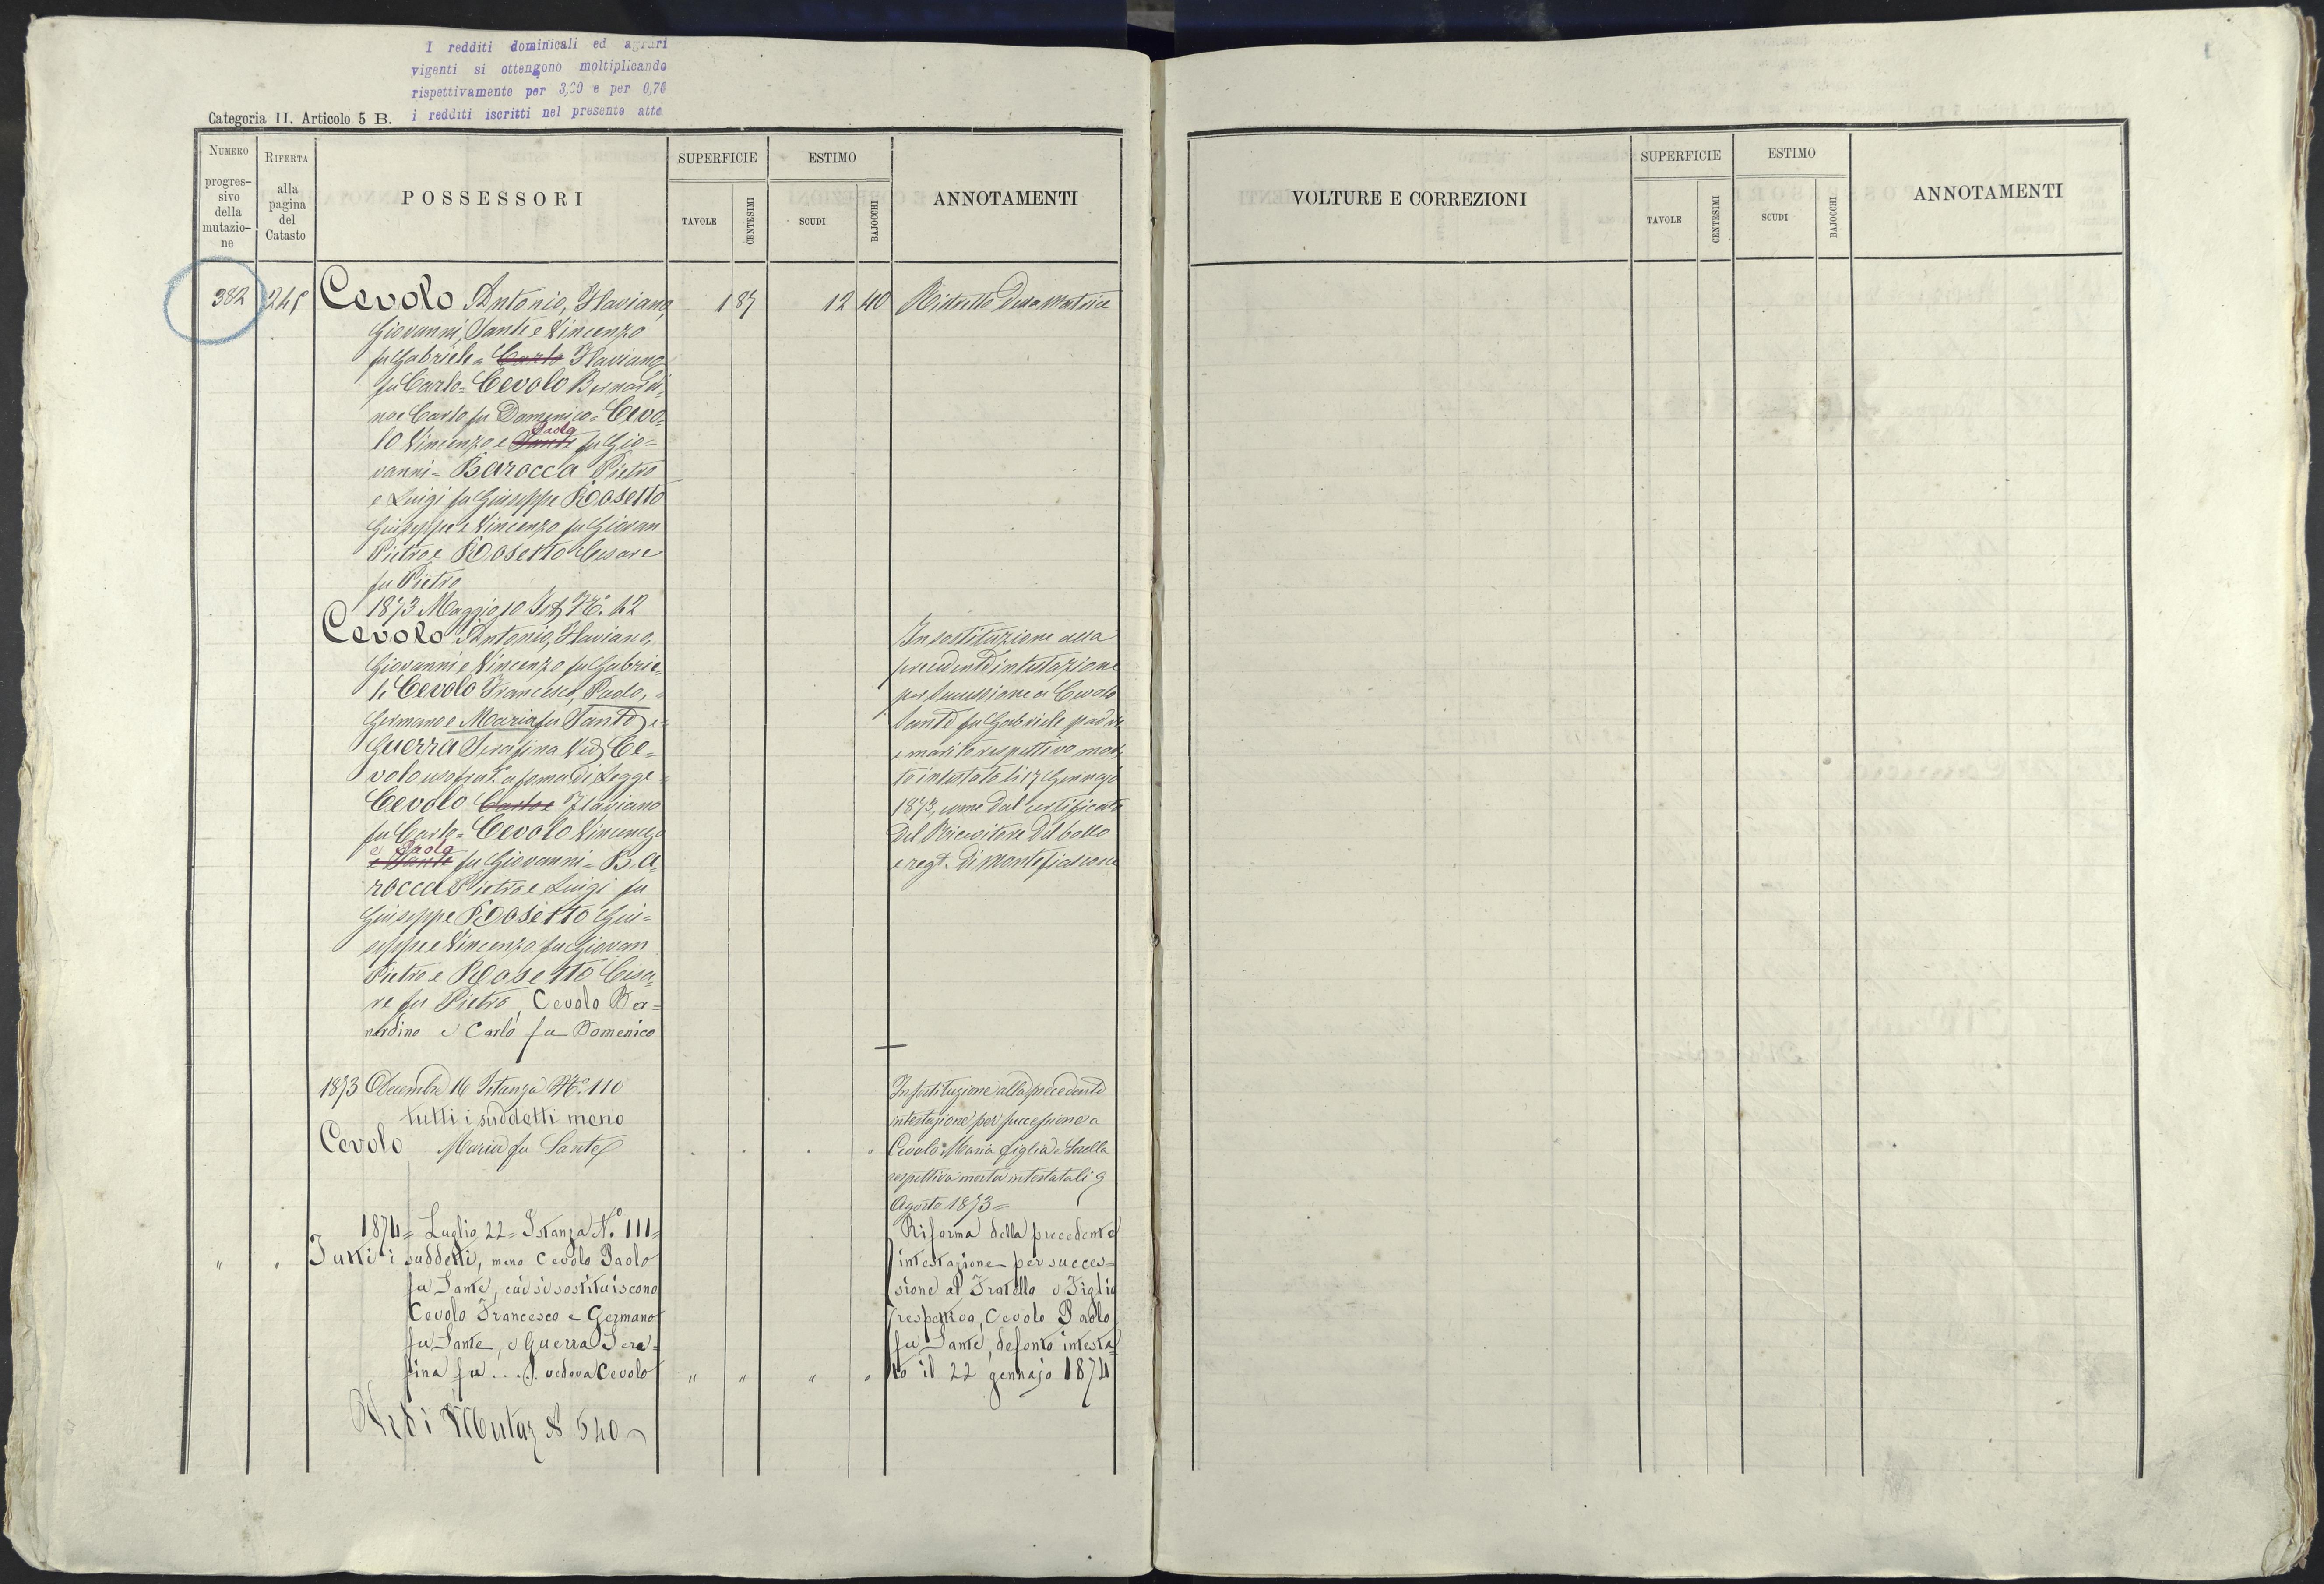 I redditi dominicali ed agrari
vigenti si ottengono moltiplicando
rispettivamente per 3,20 e per 0,76
i redditi iscritti nel presente atto
Categoria II. Articolo 5 B.
NUMERO progressivo della mutazione
RIFERTA alla pagina del Catasto
POSSESSORI
SUPERFICIE
TAVOLE
CENTESIMI
ESTIMO
SCUDI
BAJOCCHI
ANNOTAMENTI
VOLTURE E CORREZIONI
SUPERFICIE
TAVOLE
CENTESIMI
ESTIMO
SCUDI
BAJOCCHI
ANNOTAMENTI
382 Cevolo Antonio, Flaviano, 1 12 40 Ristretto della Matrice
Giovanni, Sante e Vincenzo
fu Gabriele = Carlo Flaviano
fu Carlo = Cevolo Bernardi
no e Carlo fu Domenico = Cevo
Paolo
lo Vincenzo e Sante fu Gio=
vanni = Barocca Pietro
e Luigi fu Giuseppe Rosetto
Giuseppe e Vincenzo fu Giovan
Pietro e Rosetto Cesare
fu Pietro
1873 Maggio 10 Ist. N°. 42
Cevolo Antonio, Flaviano,
Giovanni e Vincenzo fu Gabrie=
le Cevolo Francesco, Paolo,
Germano e Maria fu Sante e
Guerra Serafina Ved. Ce=
volo usufrutt. a forma di Legge =
Cevolo Carlo e Flaviano
fu Carlo = Cevolo Vincenzo
e Paolo
e Sante fu Giovanni = Ba
rocca Pietro e Luigi fu
Giuseppe Rosetto Giu=
seppe e Vincenzo fu Giovan
Pietro e Rosetto Cesa
re fu Pietro, Cevolo Ber=
nardino e Carlo fu Domenico
In sostituzione alla
precedente intestazione
per successione a Cevolo
Sante fu Gabriele padre
e marito respettivo mor
to intestato li 17 Gennajo
1873, come dal certificato
del Ricevitore del bollo
e regt. di Montefiascone
1873 Decembre 16 Istanza N°. 110
tutti i suddetti meno
Cevolo Maria fu Sante
In sostituzione alla precedente
intestazione per successione a
Cevolo Maria figlia e Sorella
respettiva morta intestata li 9
Agosto 1873 =
1874 = Luglio 22 = Istanza N°. 111 =
Tutti i suddetti, meno Cevolo Paolo
fu Sante, cui si sostituiscono
Cevolo Francesco e Germano
fu Sante, e Guerra Sera=
fina fu .... vedova Cevolo
Riforma della precedente
intestazione per succes=
sione al Fratello e Figlio
respettivo, Cevolo Paolo
fu Sante, defonto intesta
to il 22 gennajo 1874
Vedi Mutaz N 540